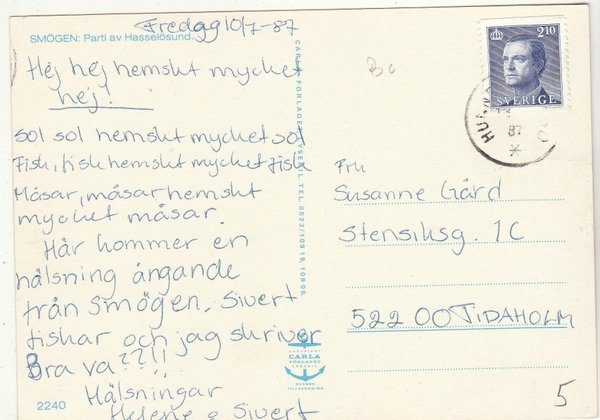 Fredag 10/7-87
SMÖGEN: Parti av Hasselösund.
Hej hej hemskt mycket
hej!
Sol sol hemskt mycket sol
Fisk, fisk hemskt mycket fisk
Måsar, måsar hemskt
mycket måsar.
Här kommer en
hälsning ångande
från Smögen. Sivert
fiskar och jag skriver
Bra va??!!
Hälsningar
Helene & Sivert
2240
CARLA FÖRLAGET LYSEKIL TEL. 0523/10919, 10909.
COPYRIGHT
CARLA
FÖRLAGET
LYSEKIL
SVENSK
TILLVERKNING
2.10
SVERIGE
87
Frk
Susanne Gård
Stensiksg. 1C
522 00 TIDAHOLM
5